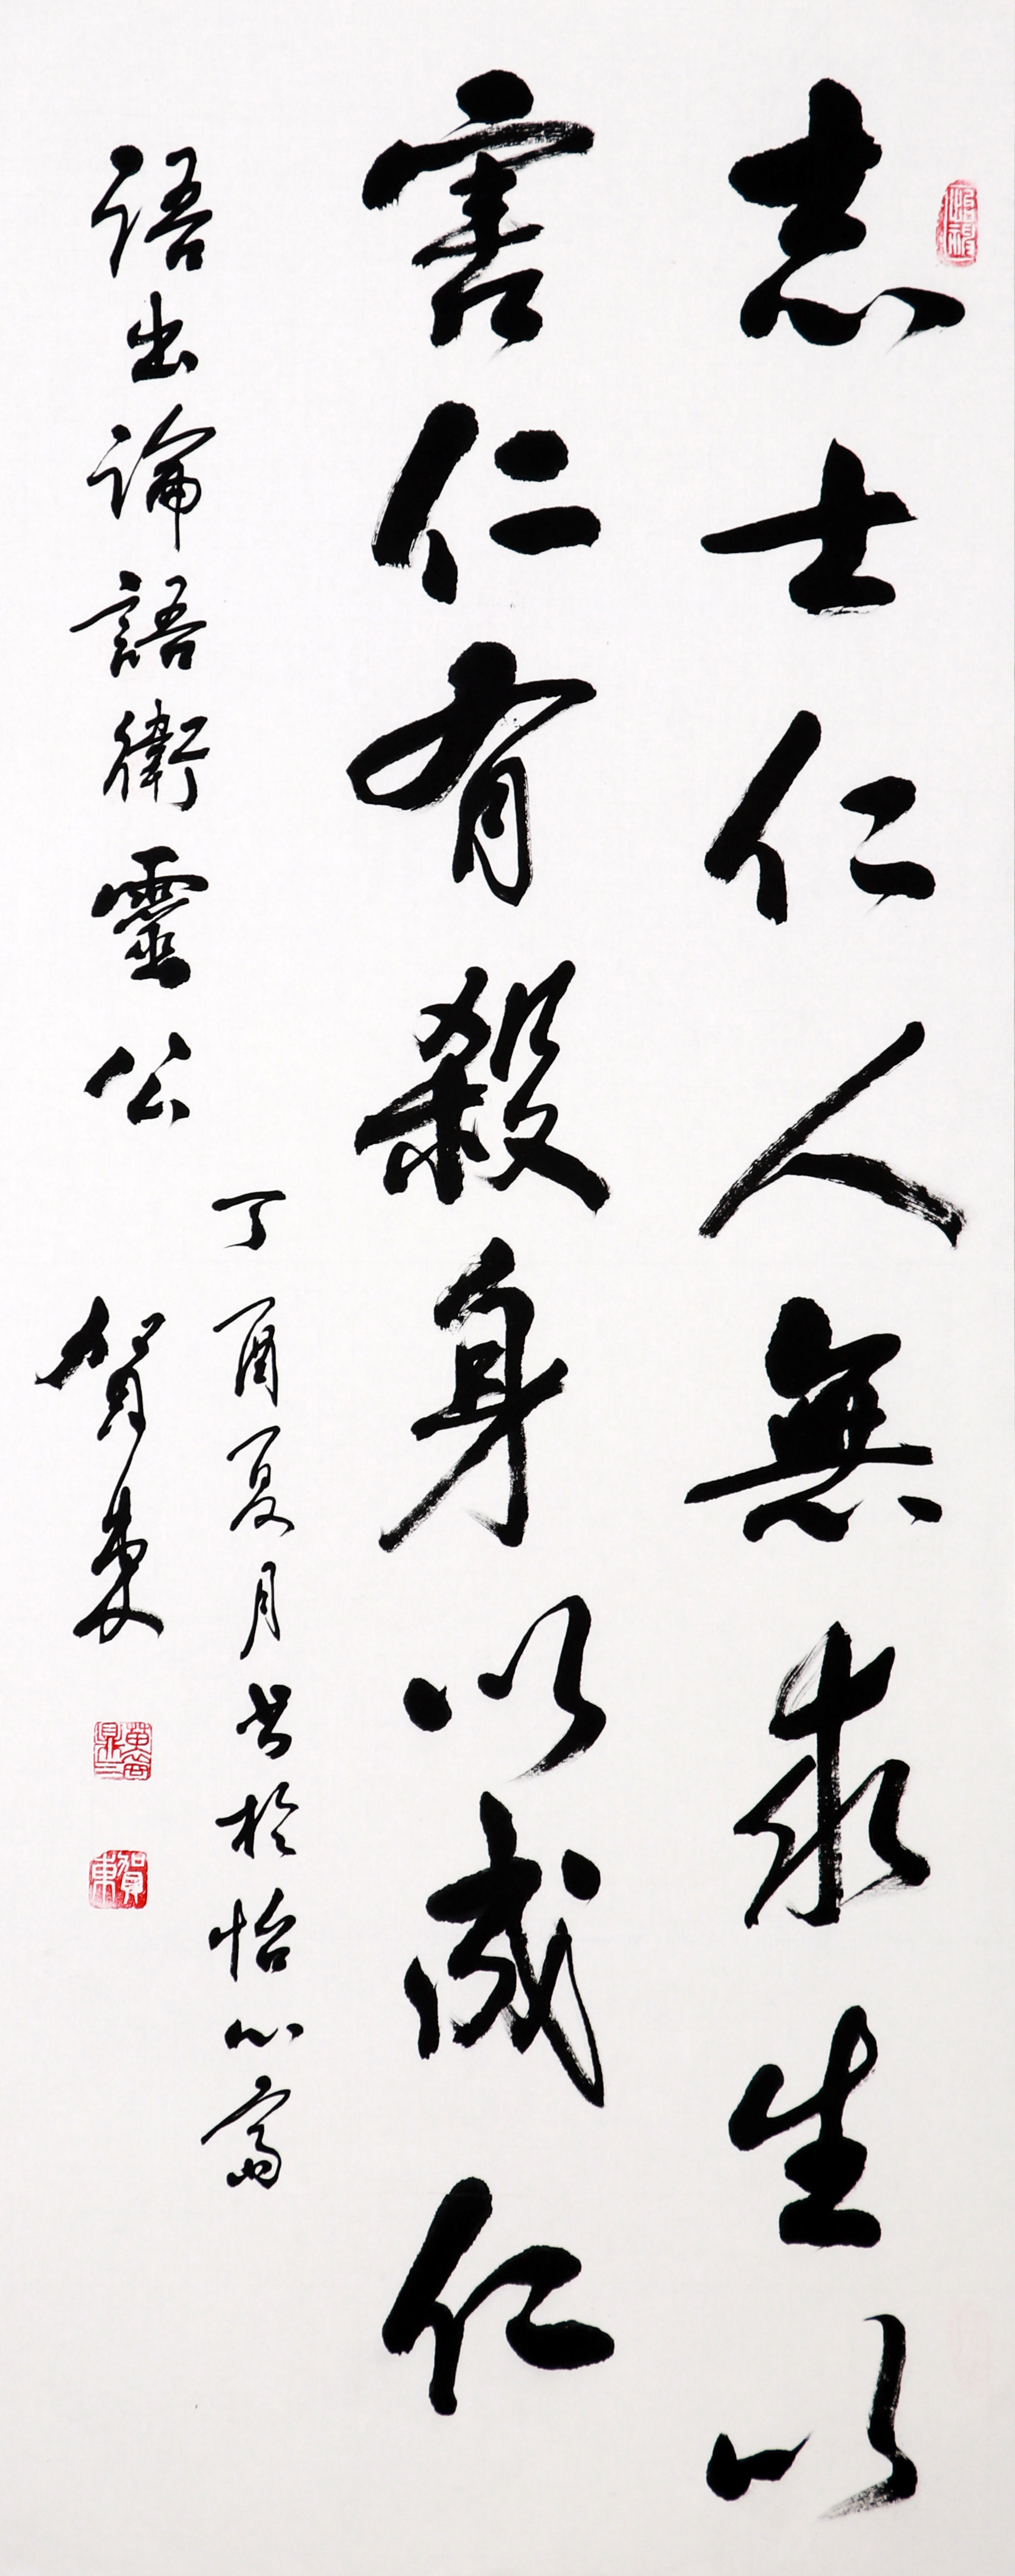 志士仁人無求生以
害仁有殺身以成仁
語出論語衛靈公
丁酉夏月书於怡心斋
賀東
賀東